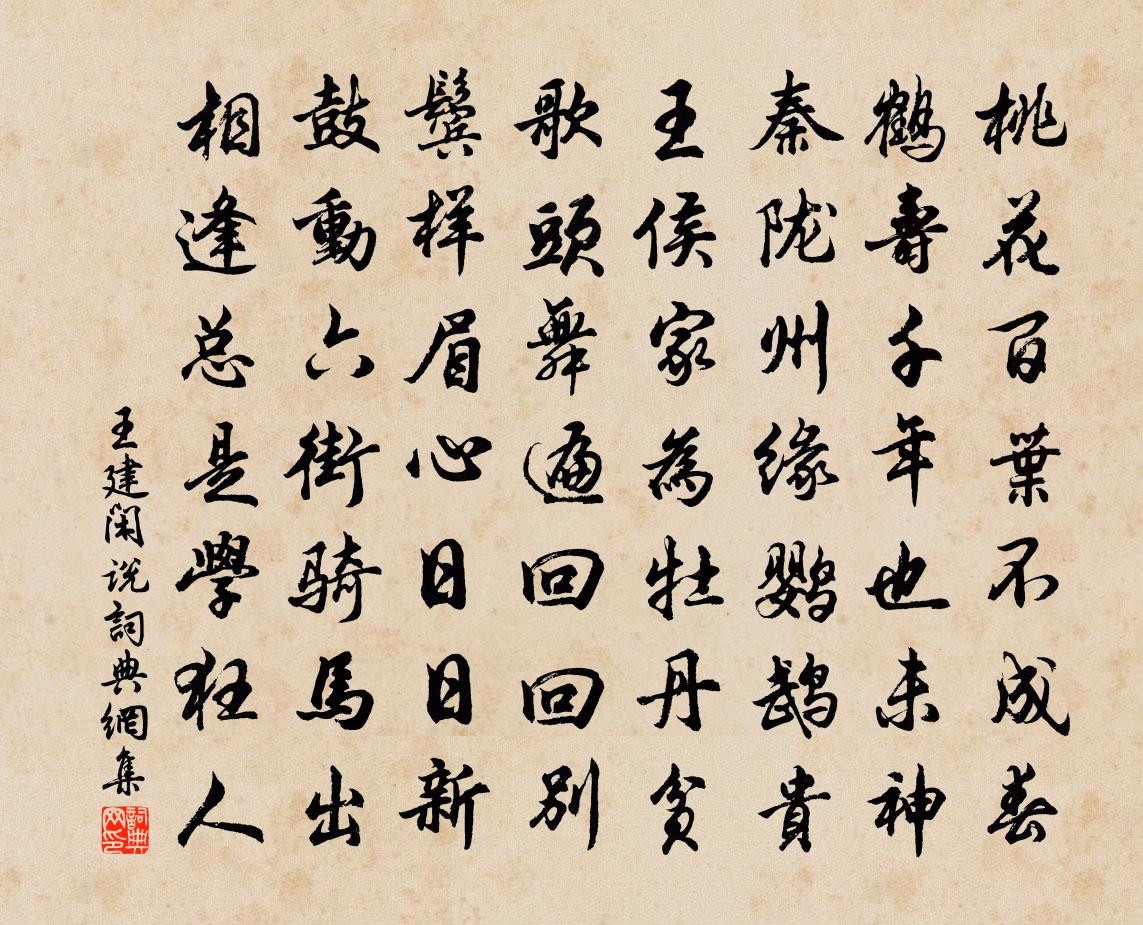 桃花百葉不成春
鶴壽千年也未神
秦陇州緣鸚鵡貴
王侯家為牡丹貧
歌頭舞遍回回別
鬢样眉心日日新
鼓動六街騎馬出
相逢总是學狂人
王建閑说詞典網集
詞典网印